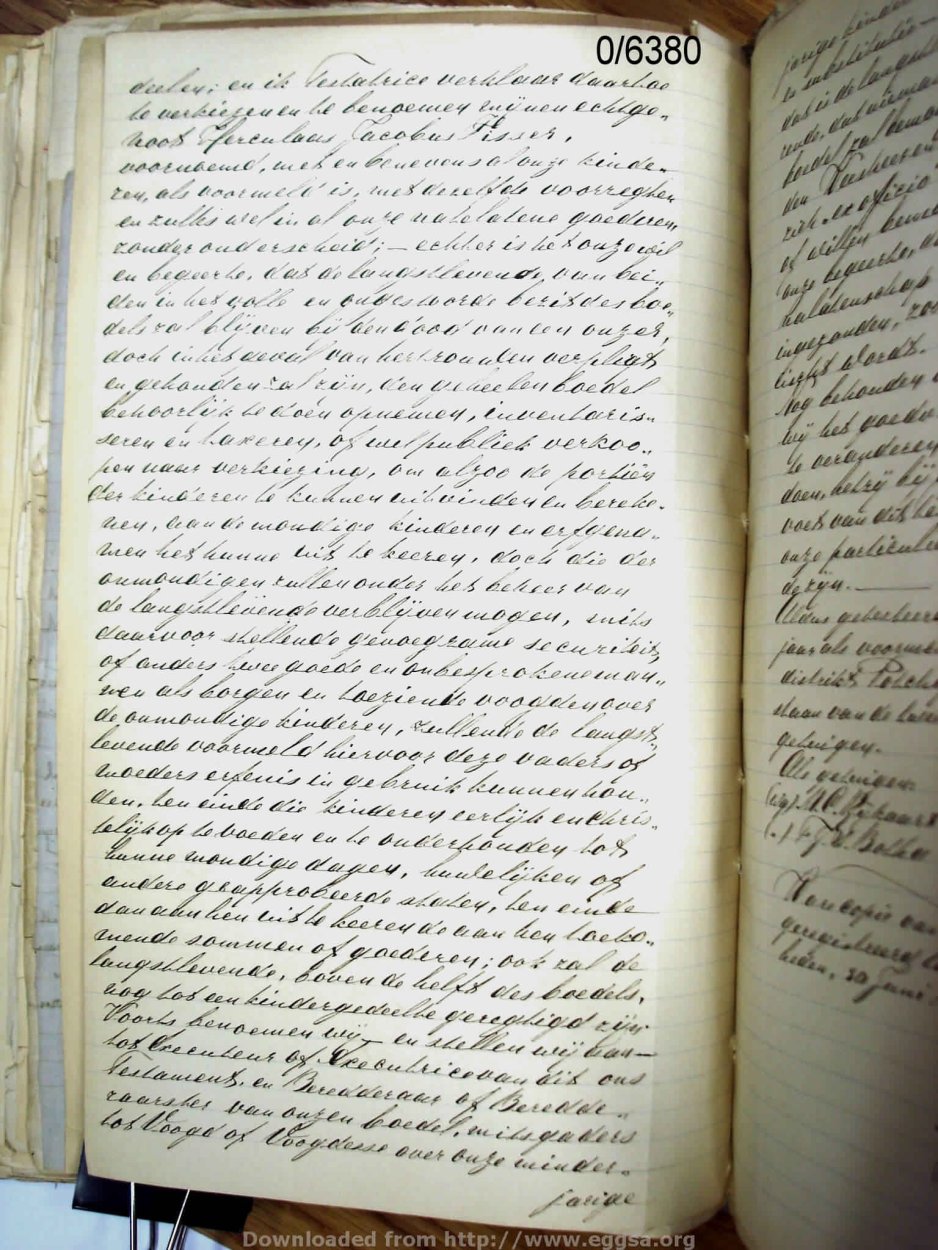 0/6380
deelen; en ik Testatrice verklaar daartoe
te verkiezen en te benoemen mijnen echtge„
noot Herculaas Jacobus Visser,
voornoemd, met en benevens al onze kinde„
ren, als voormeld is, met dezelfde voorreghten
en zulks wel in al onze natelatene goederen
zonder onderscheid; — echter is het onze wil
en begeerte, dat de langstlevende, van bei„
den in het volle en ongestoorde bezit des boe„
dels zal blijven bij den dood van een onzer,
doch in het geval van hertrouwen verpligt
en gehouden zal zijn, den geheelen boedel
behoorlijk te doen opnemen, inventaris„
seren en taxeren, of wel publiek verkoo„
pen naar verkiezing, om alzoo de portiën
der kinderen te kunnen uitvinden en bereke„
nen, aan de mondige kinderen en erfgena„
men het hunne uit te keeren, doch die der
onmondigen zullen onder het beheer van
de langstlevende verblijven mogen, mits
daarvoor stellende genoegzame securiteit,
of anders twee goede en onbesprokene man„
nen als borgen en toeziende voogden over
de onmondige kinderen, zullende de langst„
levende voormeld hiervoor deze vaders of
moeders erfenis in gebruik kunnen hou„
den, ten einde die kinderen eerlijk en chris„
telijk op te voeden en te onderhouden tot
hunne mondige dagen, huwelijken of
andere geapprobeerde staten, ten einde
dan aan hen uit te keeren de aan hen toeko„
mende sommen of goederen; ook zal de
langstlevende, boven de helft des boedels,
nog tot een kindergedeelte geregtigd zijn.
Voorts benoemen wij en stellen wij aan
tot Executeur of Executrice van dit ons
Testament, en Beredderaar of Beredde„
raarster van onzen boedel, mitsgaders
tot Voogd of Voogdesse over onze minder„
jarige
jarige kinder
dat is de langst
boedel zal
den
zich ex officio
of willen
onze begeerte, d
nalatenschap
ingezonden,
wordt.
Nog behouden
wij het goed
te veranderen
doen, hetzij bij
voet van dit te
onze particulie
de zijn.
Aldus getesteer
jaar als voorme
distrikt Potche
staan van de
getuigen.
Als getuigen
Botha
Voor copie
geregistreerd
heden, 30 Juni
Downloaded from http://www.eggsa.org